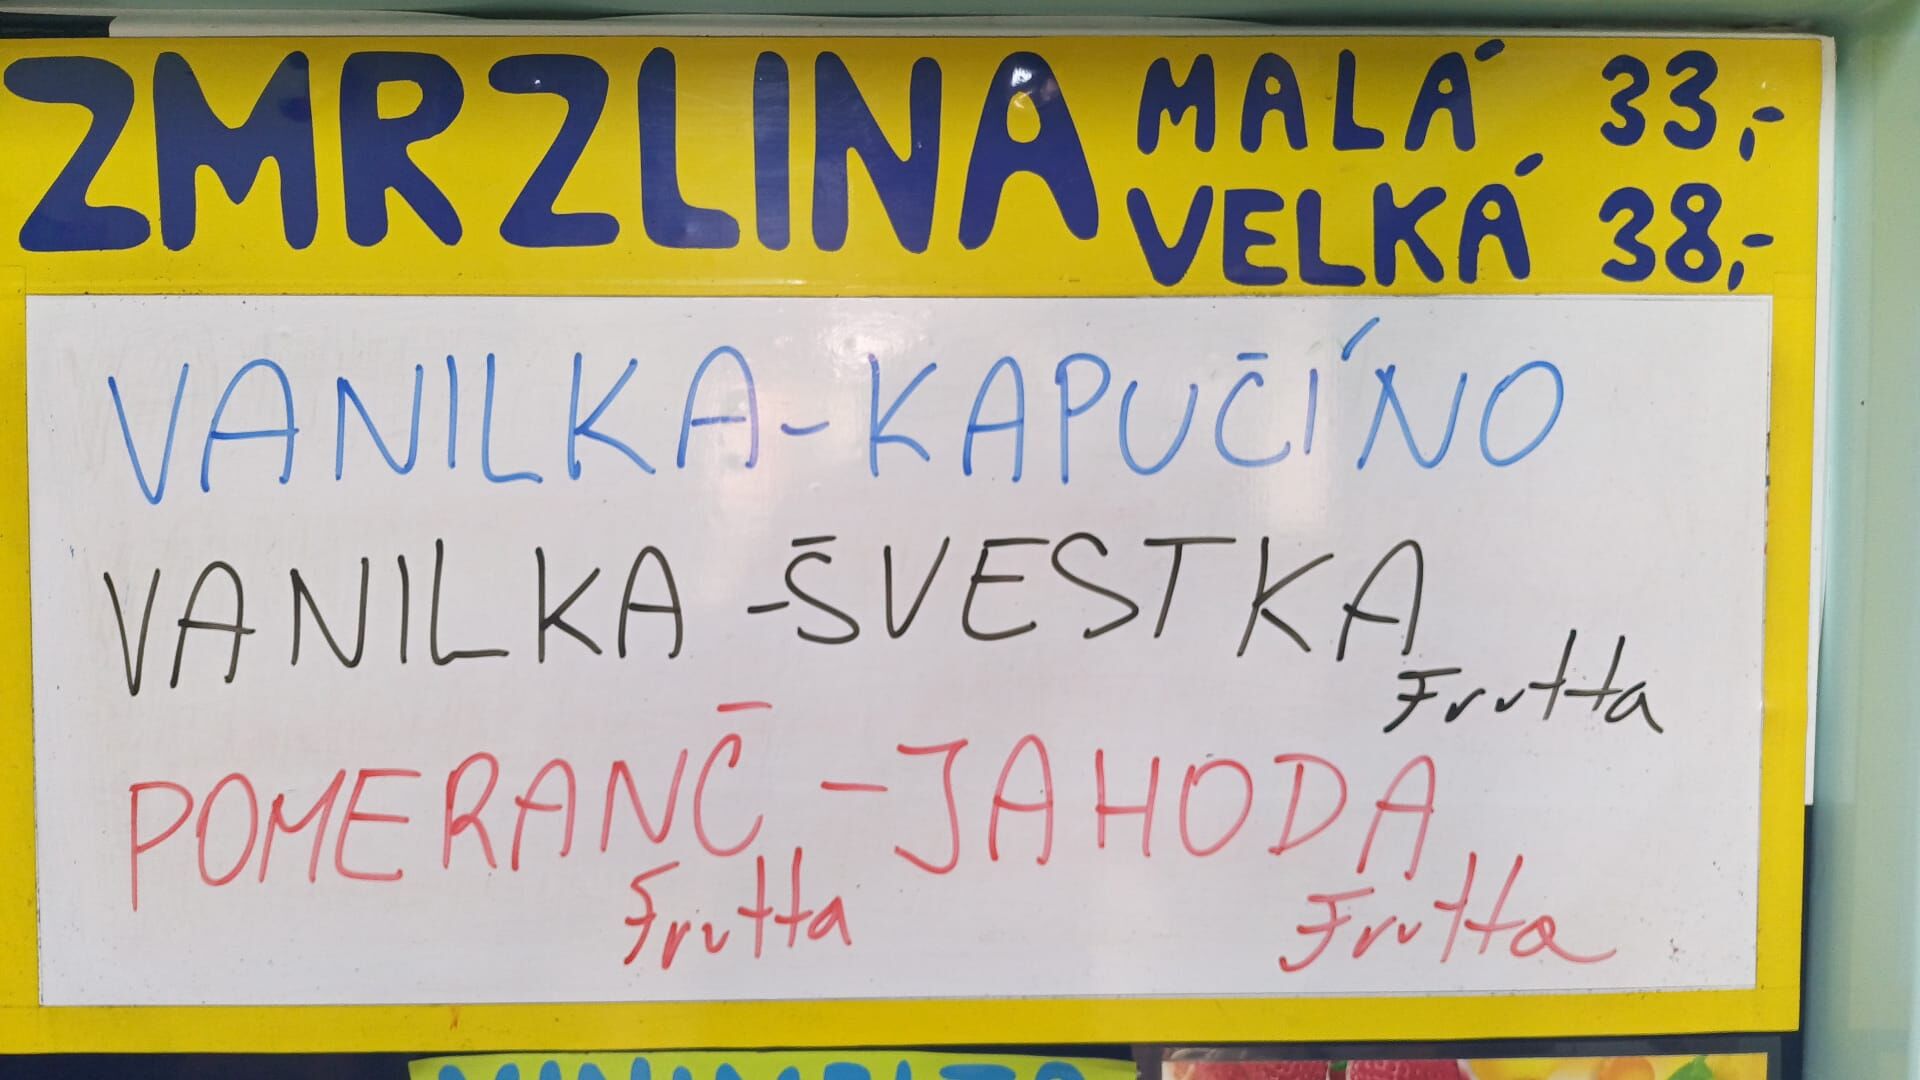 ZMRZLINA MALÁ 33,-
VELKÁ 38,-
VANILKA-KAPUČÍNO
VANILKA-ŠVESTKA
Frutta
POMERANČ-JAHODA
Frutta Frutta